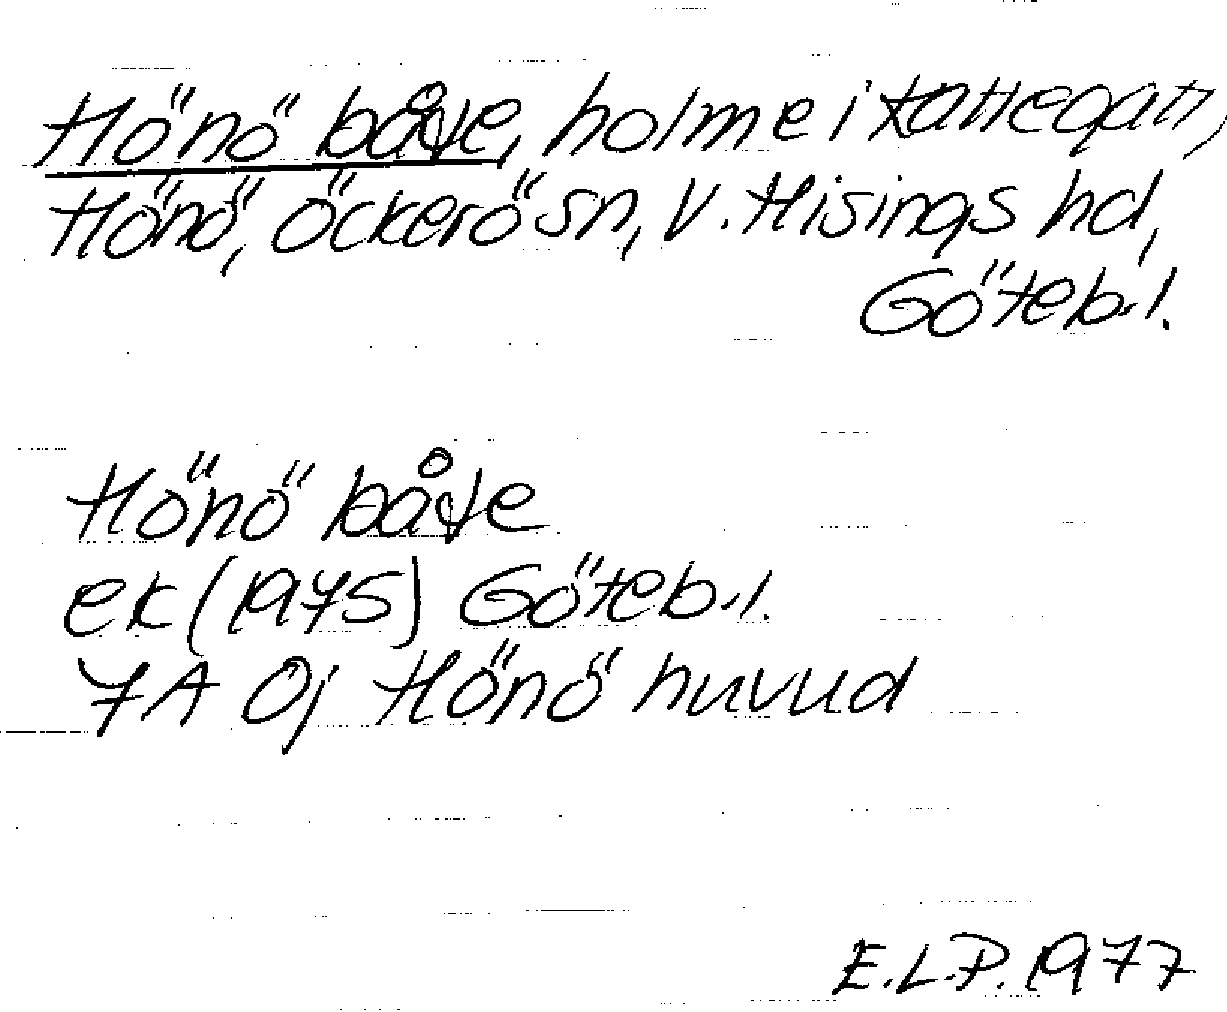 Hönö både, holme i Kattegatt,
Hönö, Öckerö sn, V. Hisings hd,
Göteb. l.
Hönö både
ek (1975) Göteb. l.
7A Oj Hönö huvud
E.L.P. 1977